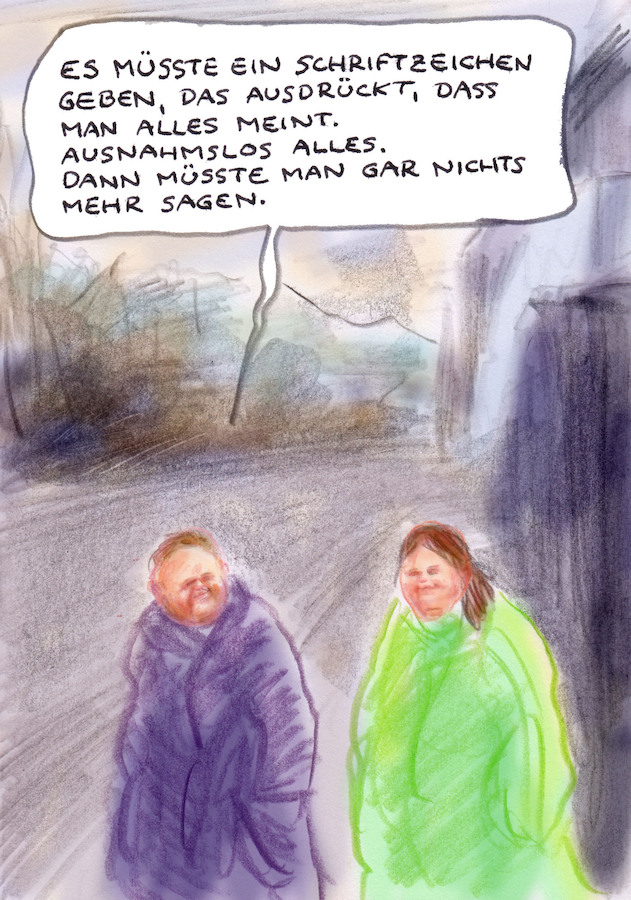 ES MÜSSTE EIN SCHRIFTZEICHEN
GEBEN, DAS AUSDRÜCKT, DASS
MAN ALLES MEINT.
AUSNAHMSLOS ALLES.
DANN MÜSSTE MAN GAR NICHTS
MEHR SAGEN.